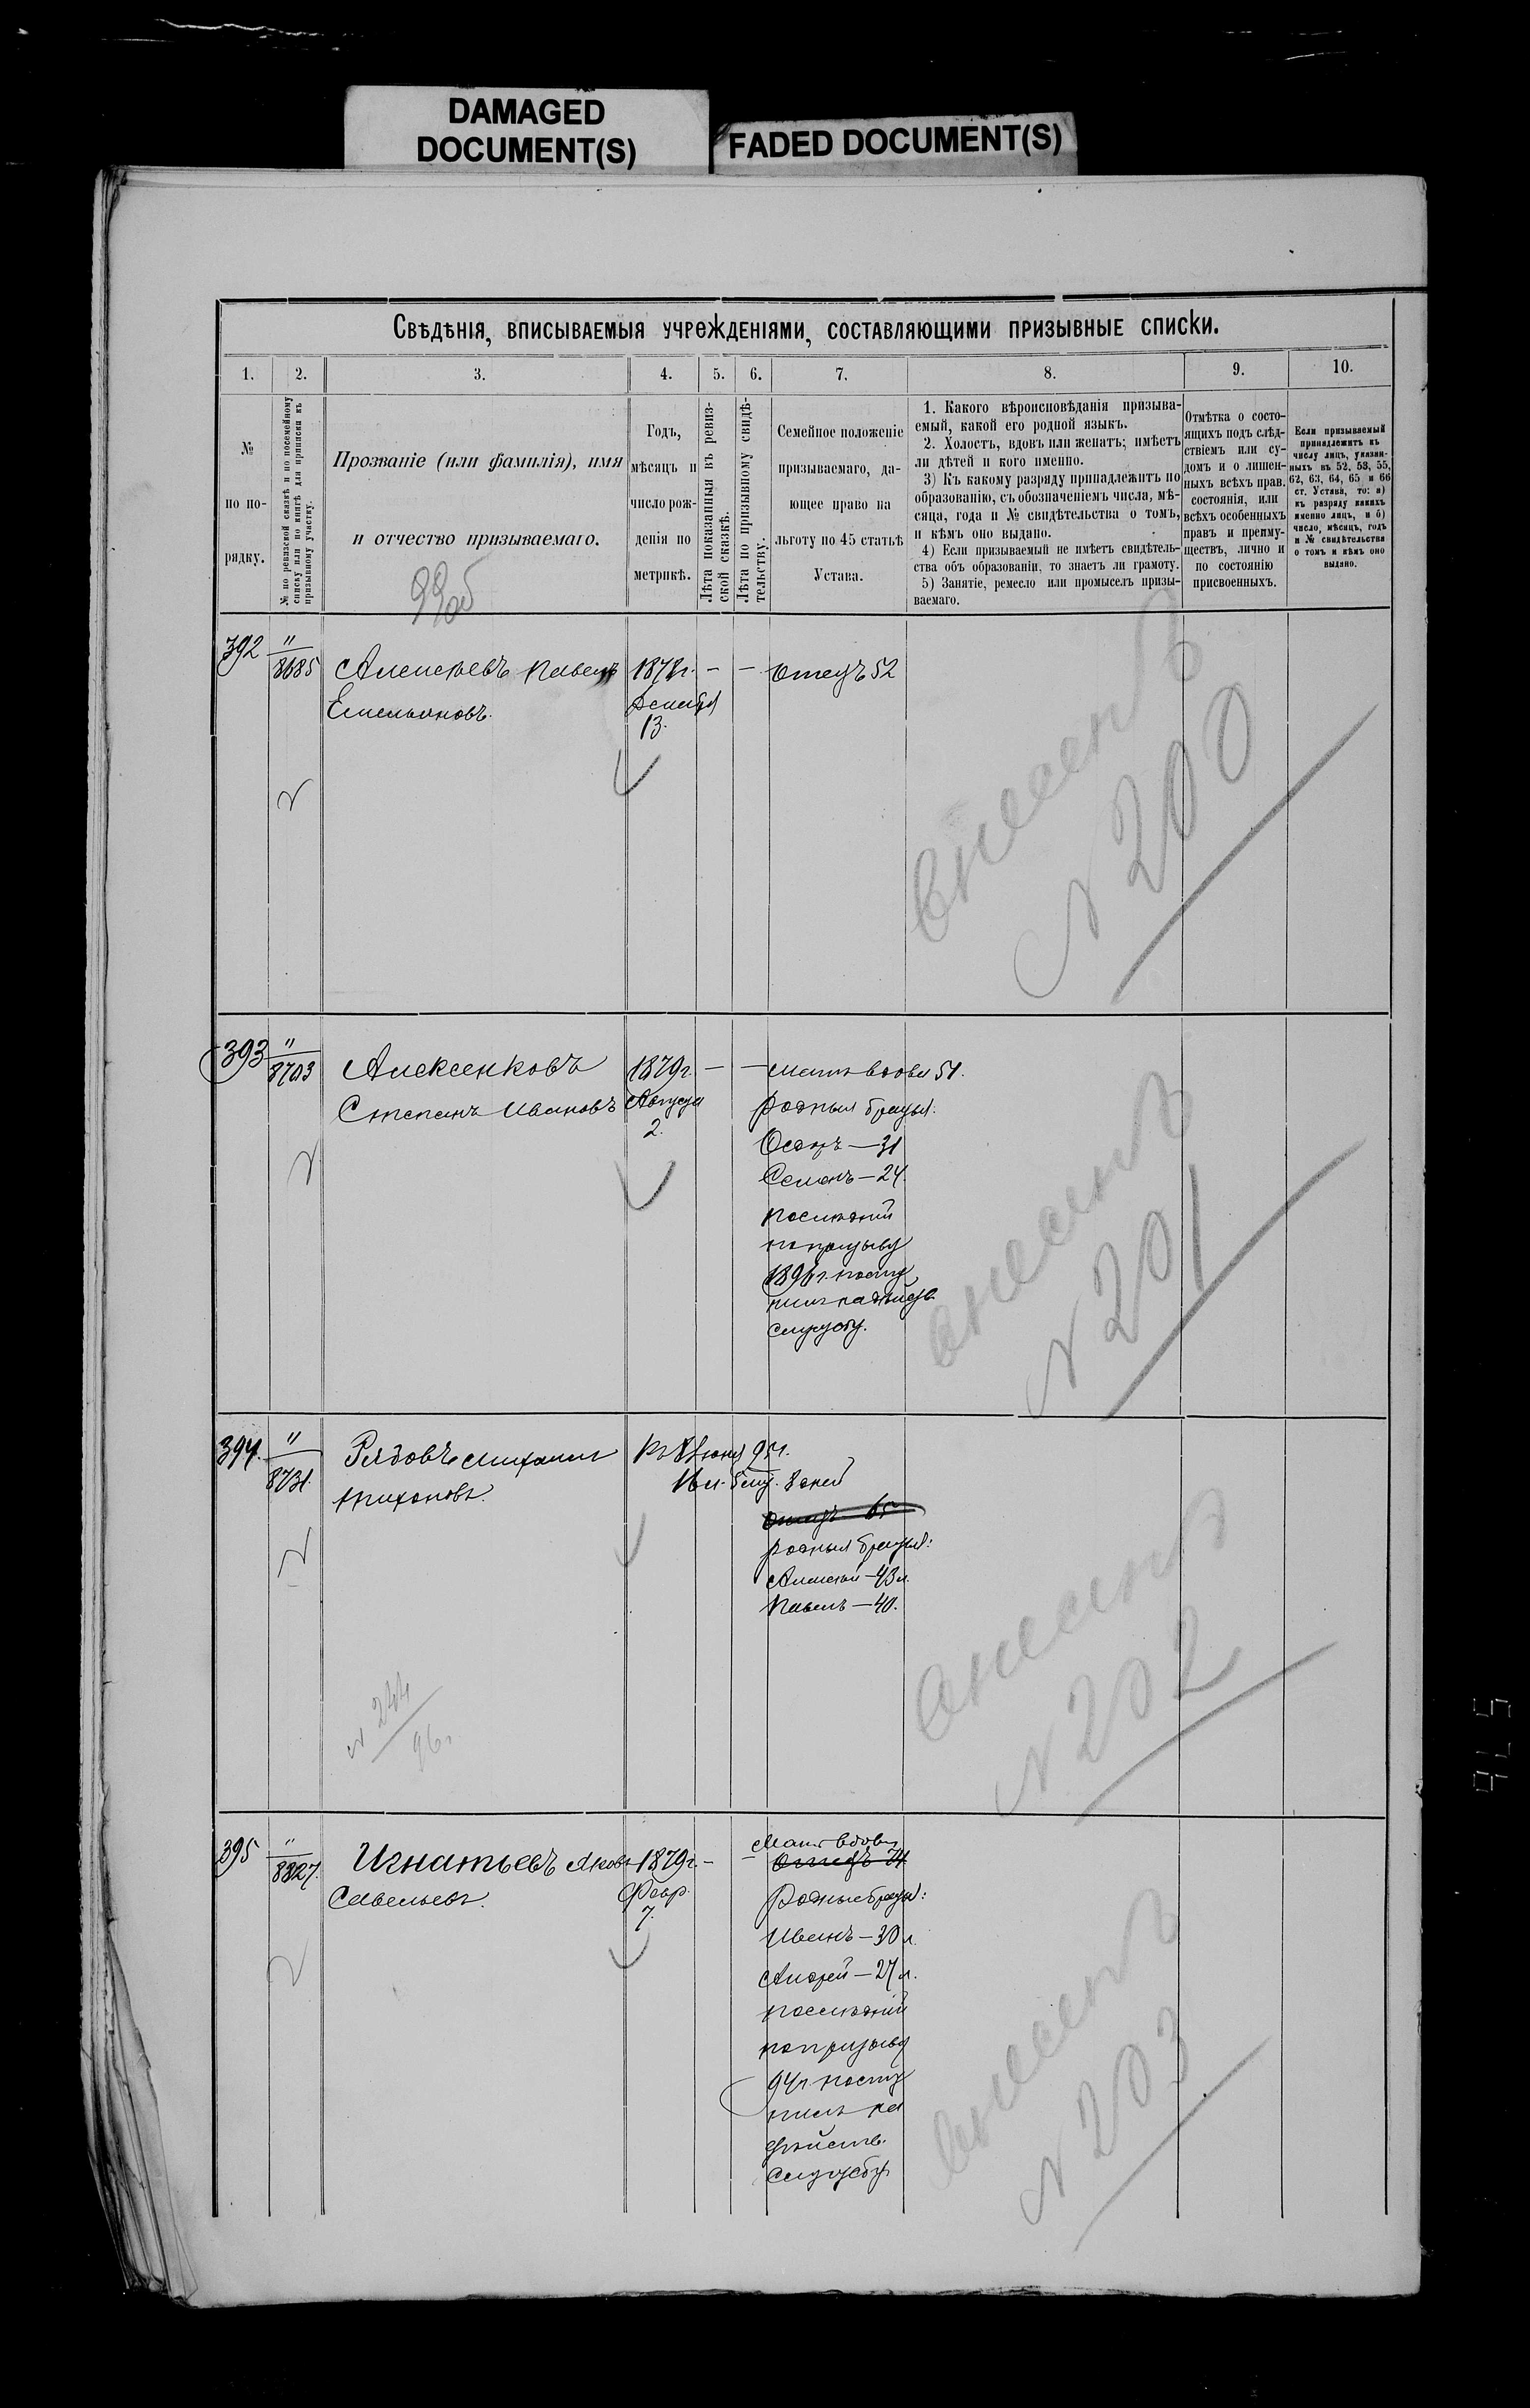 DAMAGED
DOCUMENT(S)
FADED DOCUMENT(S)
Свѣдѣнія, вписываемыя учрежденіями, составляющими призывные списки.
1. 2. 3. 4. 5. 6. 7. 8. 9. 10.
№
по по-
рядку.
№ по ревизской сказкѣ и по посемейному
списку или по книгѣ для приписки къ
призывному участку.
Прозваніе (или фамилія), имя
и отчество призываемаго.
Годъ,
мѣсяцъ и
число рож-
денія по
метрикѣ.
Лѣта показанныя въ ревиз-
ской сказкѣ.
Лѣта по призывному свидѣ-
тельству.
Семейное положеніе
призываемаго, да-
ющее право на
льготу по 45 статьѣ
Устава.
1. Какого вѣроисповѣданія призыва-
емый, какой его родной языкъ.
2. Холостъ, вдовъ или женатъ; имѣетъ
ли дѣтей и кого именно.
3) Къ какому разряду принадлежитъ по
образованію, съ обозначеніемъ числа, мѣ-
сяца, года и № свидѣтельства о томъ,
и кѣмъ оно выдано.
4) Если призываемый не имѣетъ свидѣтель-
ства объ образованіи, то знаетъ ли грамоту.
5) Занятіе, ремесло или промыселъ призы-
ваемаго.
Отмѣтка о состо-
ящихъ подъ слѣд-
ствіемъ или су-
домъ и о лишен-
ныхъ всѣхъ прав.
состоянія, или
всѣхъ особенныхъ
правъ и преиму-
ществъ, лично и
по состоянію
присвоенныхъ.
Если призываемый
принадлежитъ къ
числу лицъ, указан-
ныхъ въ 52, 53, 55,
62, 63, 64, 65 и 66
ст. Устава, то: а)
къ разряду какихъ
именно лицъ, и б)
число, мѣсяцъ, годъ
и № свидѣтельства
о томъ и кѣмъ оно
выдано.
99об
392 " 8685 Алексѣевъ Павелъ 1878г. - - Отецъ 52
Емельяновъ. Декабря
13.
внесенъ
N 200
393 " 8703 Алексенковъ 1879г. - - мать вдова 51.
Степанъ Ивановъ Августа родныя братья.
2. Осипъ — 31
Семенъ — 24.
послѣдній
по призыву
1896г. посту
пилъ на дѣйств.
службу.
внесенъ
N 201
394. " 8731. Рябовъ Михаилъ Къ 8 Іюня 95г.
Тихоновъ. 16 л. 8 мц. 8 дней
Отецъ 65
родныя братья:
Алексѣй — 43 л.
Павелъ — 40.
N 244
96г
внесенъ
N 202
395 " 8827. Игнатьевъ Яковъ 1879г. - - Мать вдова
Отецъ 74
Савельевъ. Февр. Родные братья:
7. Иванъ — 30 л.
Андрей — 27 л.
послѣдній
по призыву
94г. посту
пилъ на
дѣйств.
службу
внесенъ
N 203
576